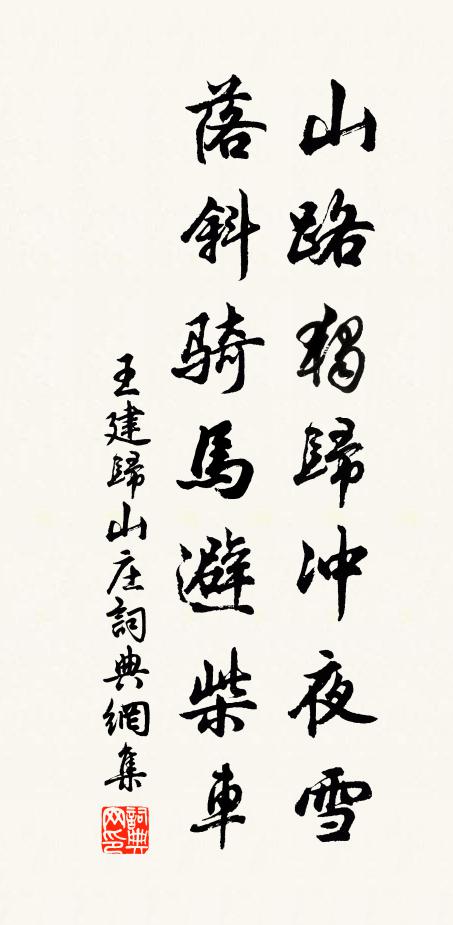 山路獨歸冲夜雪
落斜騎馬避柴車
王建歸山庄詞典網集
詞典网印